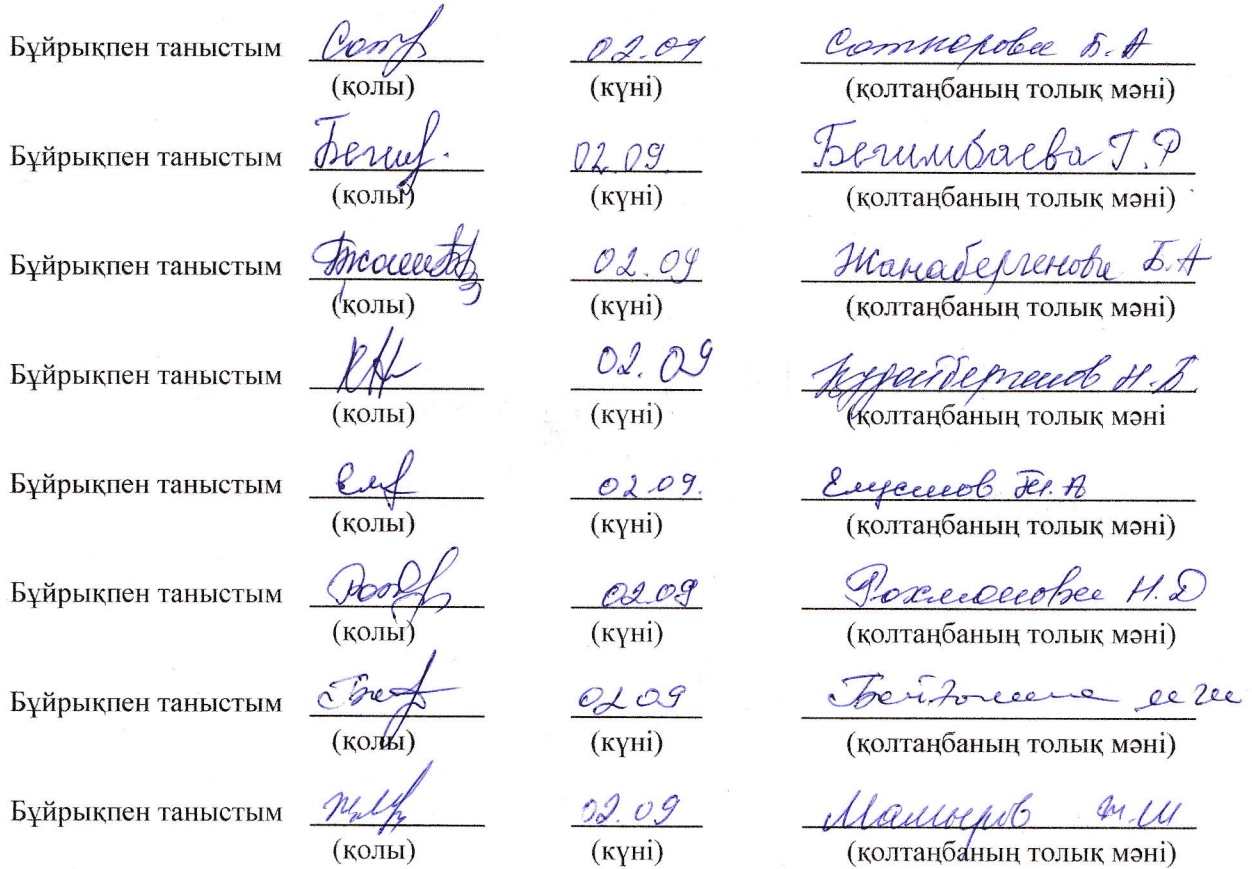 Бұйрықпен таныстым 02.09
(қолы) (күні) (қолтаңбаның толық мәні)
Бұйрықпен таныстым Бегим 02.09. Бегимбаева Г.Р
(қолы) (күні) (қолтаңбаның толық мәні)
Бұйрықпен таныстым 02.09 Жанабергенова Б.А
(қолы) (күні) (қолтаңбаның толық мәні)
Бұйрықпен таныстым 02.09 Құдайбергенов Н.Б.
(қолы) (күні) (қолтаңбаның толық мәні
Бұйрықпен таныстым 02.09. Елусинов Ж.А
(қолы) (күні) (қолтаңбаның толық мәні)
Бұйрықпен таныстым 02.09 Рахманова Н.Д
(қолы) (күні) (қолтаңбаның толық мәні)
Бұйрықпен таныстым 02 09
(қолы) (күні) (қолтаңбаның толық мәні)
Бұйрықпен таныстым 02.09 Мамыров Ж.Ш
(қолы) (күні) (қолтаңбаның толық мәні)